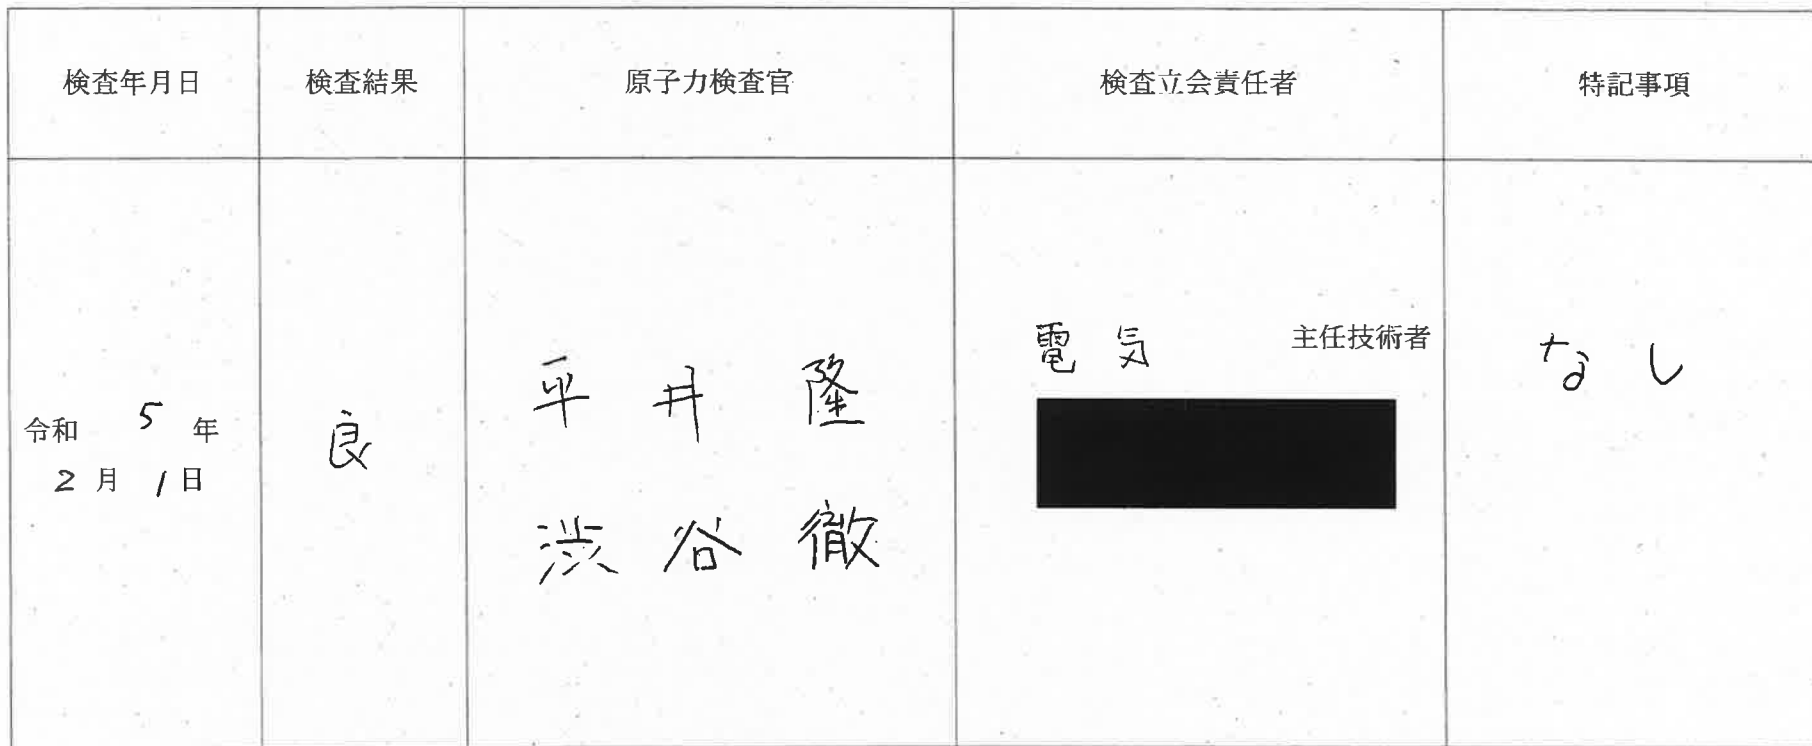 検査年月日 検査結果 原子力検査官 検査立会責任者 特記事項
令和 5 年
2 月 1 日
良
平井 隆
渋谷 徹
電気 主任技術者
なし